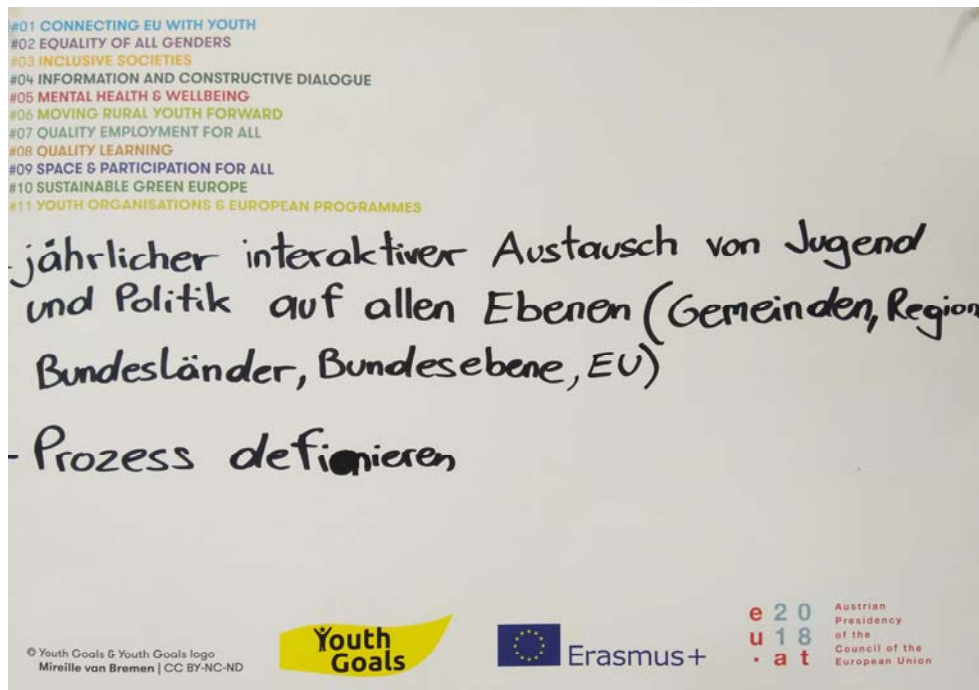 #01 CONNECTING EU WITH YOUTH
#02 EQUALITY OF ALL GENDERS
#03 INCLUSIVE SOCIETIES
#04 INFORMATION AND CONSTRUCTIVE DIALOGUE
#05 MENTAL HEALTH & WELLBEING
#06 MOVING RURAL YOUTH FORWARD
#07 QUALITY EMPLOYMENT FOR ALL
#08 QUALITY LEARNING
#09 SPACE & PARTICIPATION FOR ALL
#10 SUSTAINABLE GREEN EUROPE
#11 YOUTH ORGANISATIONS & EUROPEAN PROGRAMMES
- jährlicher interaktiver Austausch von Jugend
und Politik auf allen Ebenen (Gemeinden, Region
Bundesländer, Bundesebene, EU)
- Prozess definieren
© Youth Goals & Youth Goals logo
Mireille van Bremen | CC BY-NC-ND
Youth
Goals
Erasmus+
e20
u18
.at
Austrian
Presidency
of the
Council of the
European Union